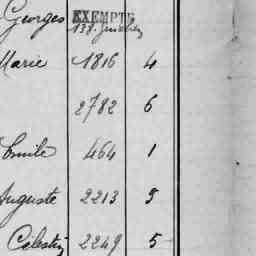 Georges EXEMPTÉ
Marie 1816 4
2782 6
Emile 464 1
Auguste 2213 5
Célestin 2249 5